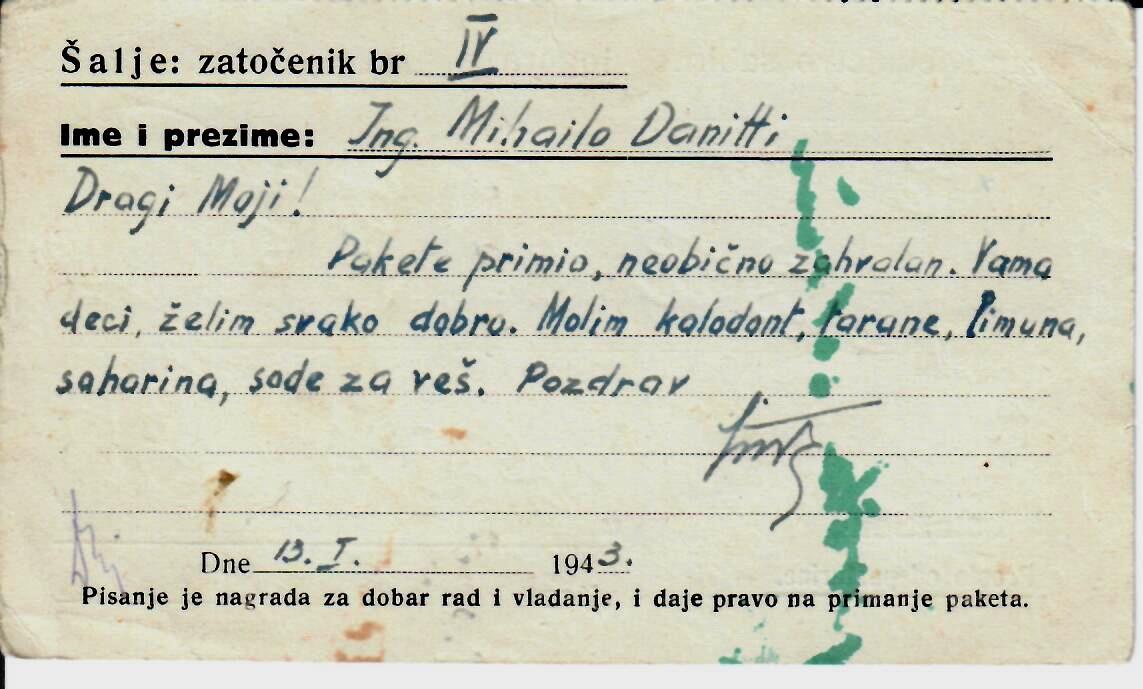 Šalje: zatočenik br IV
Ime i prezime: Ing. Mihailo Danitti
Dragi Moji!
Pakete primio, neobično zahvalan. Vama
deci, želim svako dobro. Molim kalodont, tarane, limuna,
saharina, sode za veš. Pozdrav
Dne 13. I. 1943.
Pisanje je nagrada za dobar rad i vladanje, i daje pravo na primanje paketa.